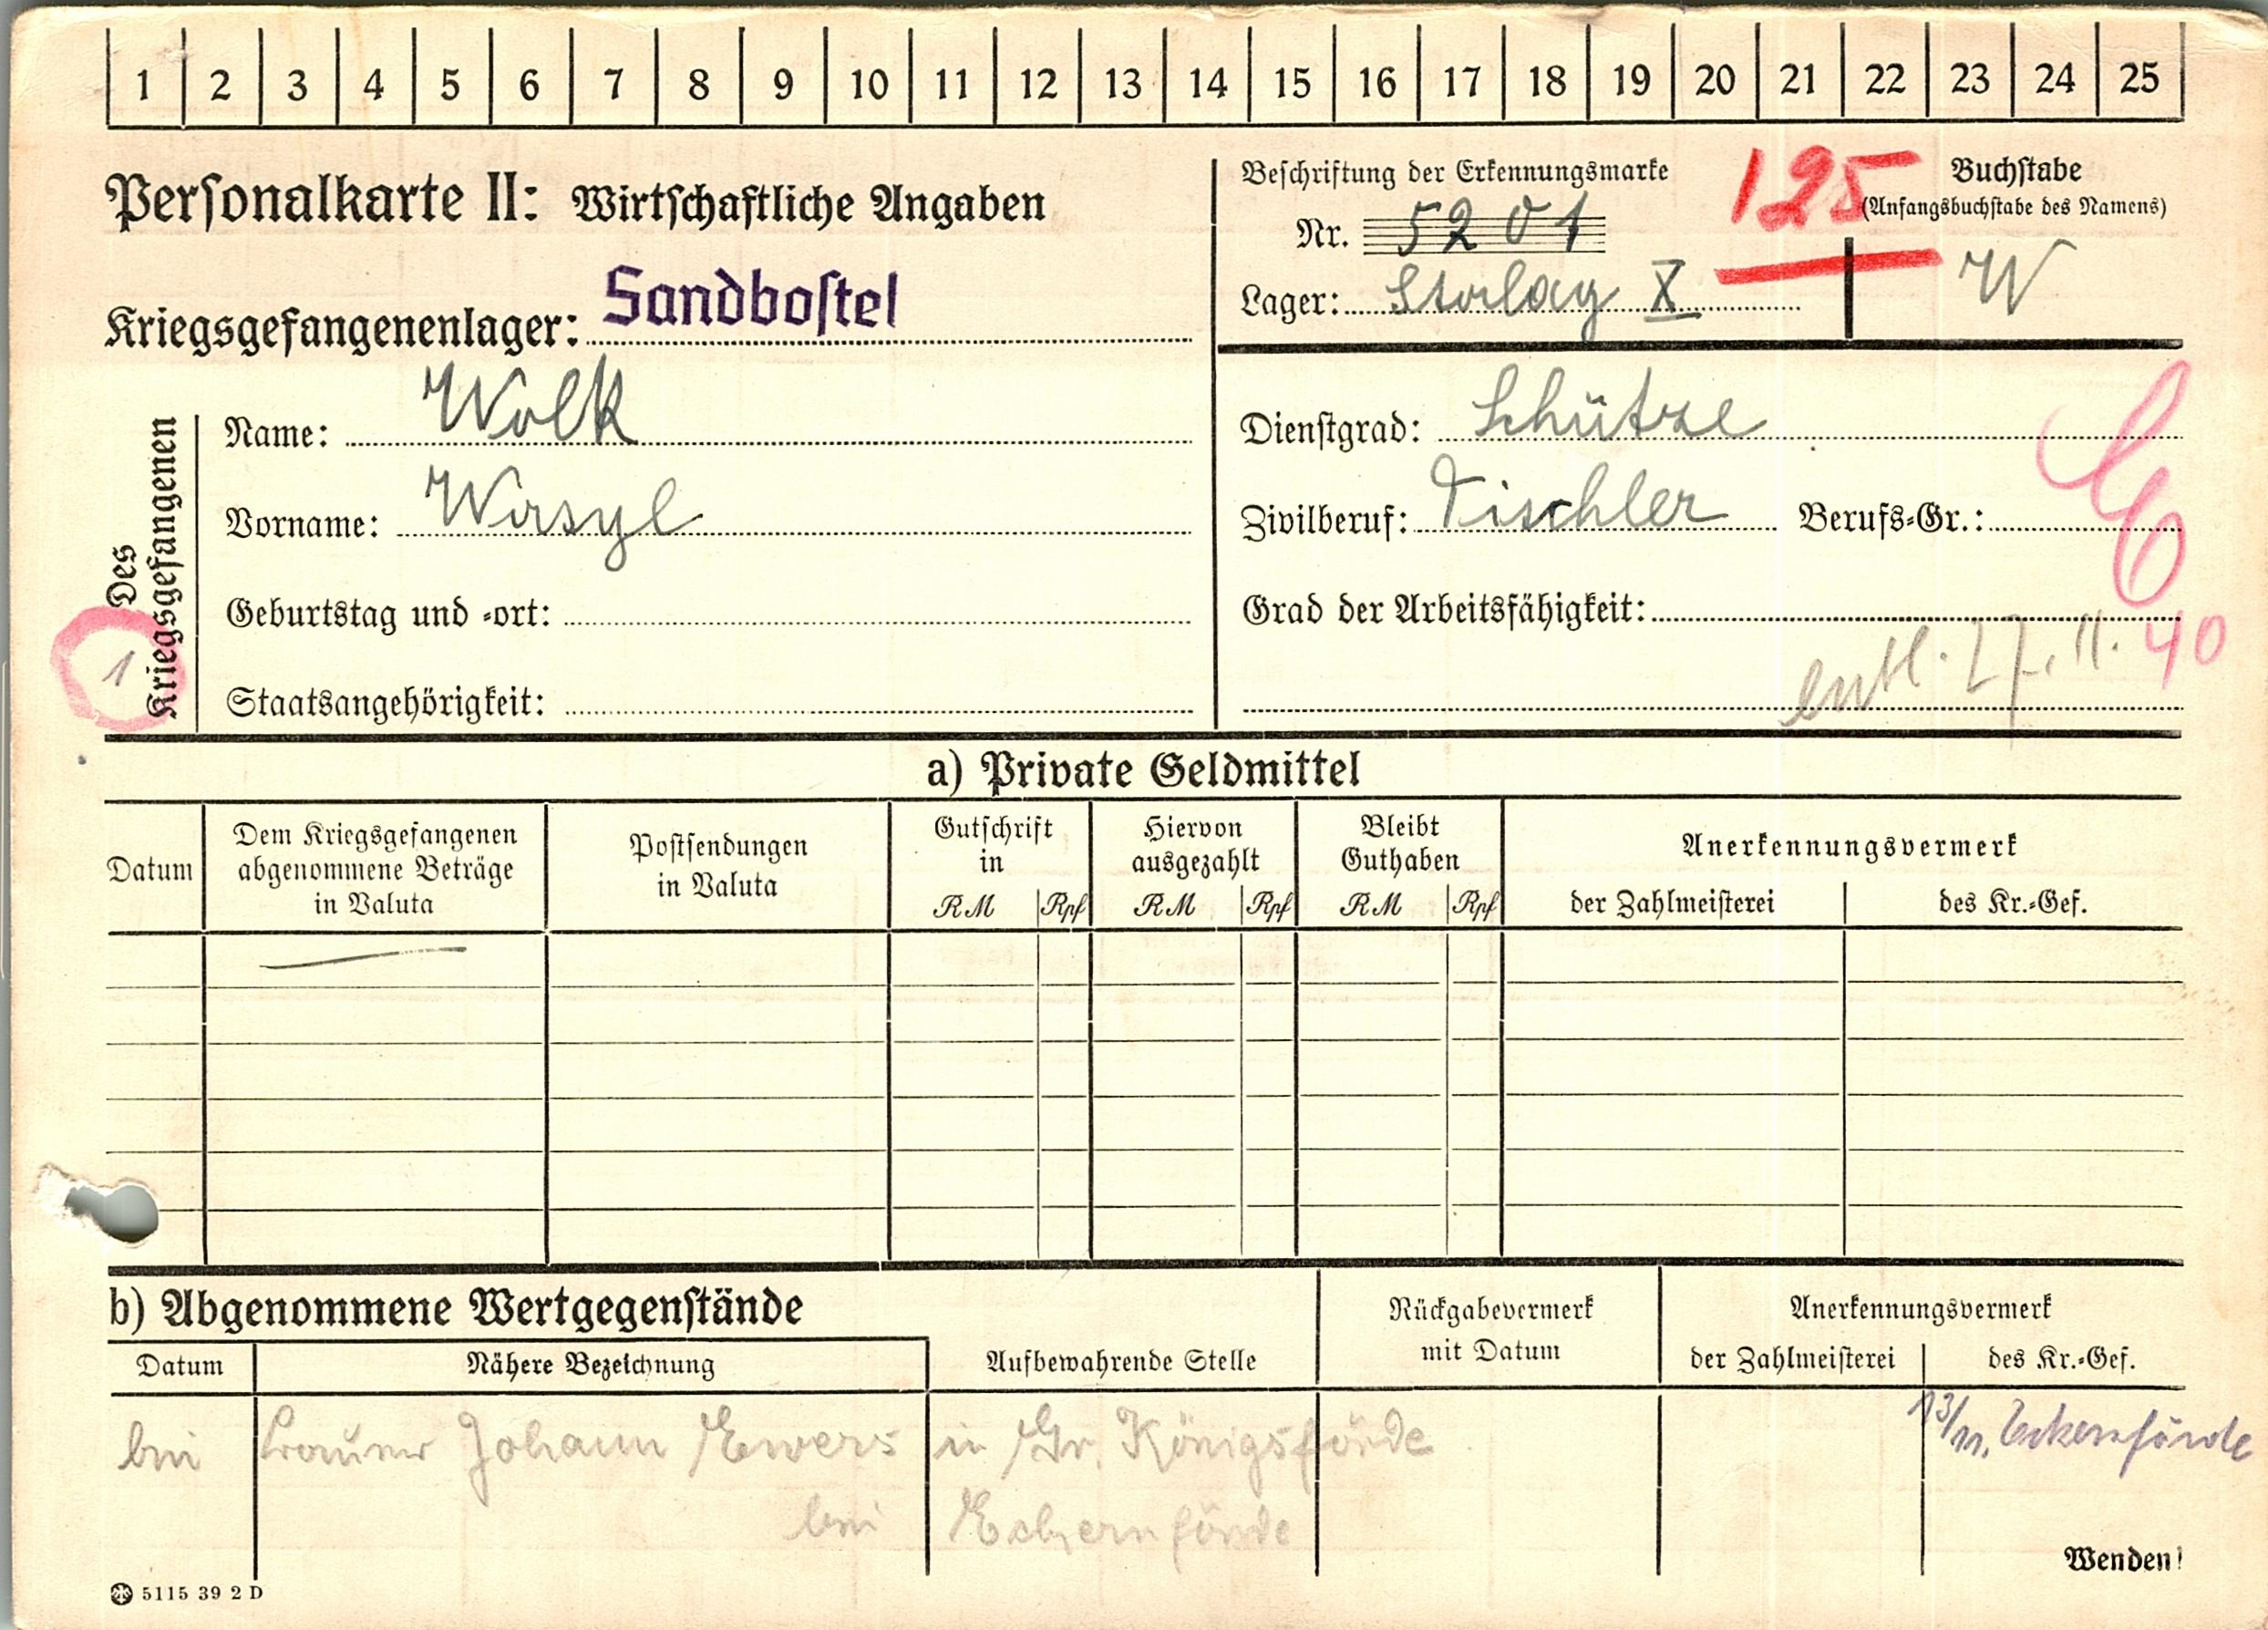 1 2 3 4 5 6 7 8 9 10 11 12 13 14 15 16 17 18 19 20 21 22 23 24 25
Personalkarte II: Wirtschaftliche Angaben
Kriegsgefangenenlager: Sandbostel
Beschriftung der Erkennungsmarke
Nr. 5201
Lager: Stalag X
125
Buchstabe
(Anfangsbuchstabe des Namens)
W
Des Kriegsgefangenen
1
Name: Wolk
Vorname: Wasyl
Geburtstag und -ort:
Staatsangehörigkeit:
Dienstgrad: Schütze
Zivilberuf: Tischler Berufs-Gr.:
Grad der Arbeitsfähigkeit:
entl. 27. 11. 40
a) Private Geldmittel
Datum
Dem Kriegsgefangenen
abgenommene Beträge
in Valuta
Postsendungen
in Valuta
Gutschrift
in
RM Rpf
Hiervon
ausgezahlt
RM Rpf
Bleibt
Guthaben
RM Rpf
Anerkennungsvermerk
der Zahlmeisterei des Kr.-Gef.
b) Abgenommene Wertgegenstände
Datum Nähere Bezeichnung Aufbewahrende Stelle
Rückgabevermerk
mit Datum
Anerkennungsvermerk
der Zahlmeisterei des Kr.-Gef.
13/11. Eckernförde
bei Bauer Johann Ewers in Gr. Königsförde
bei Eckernförde
Wenden!
5115 39 2 D